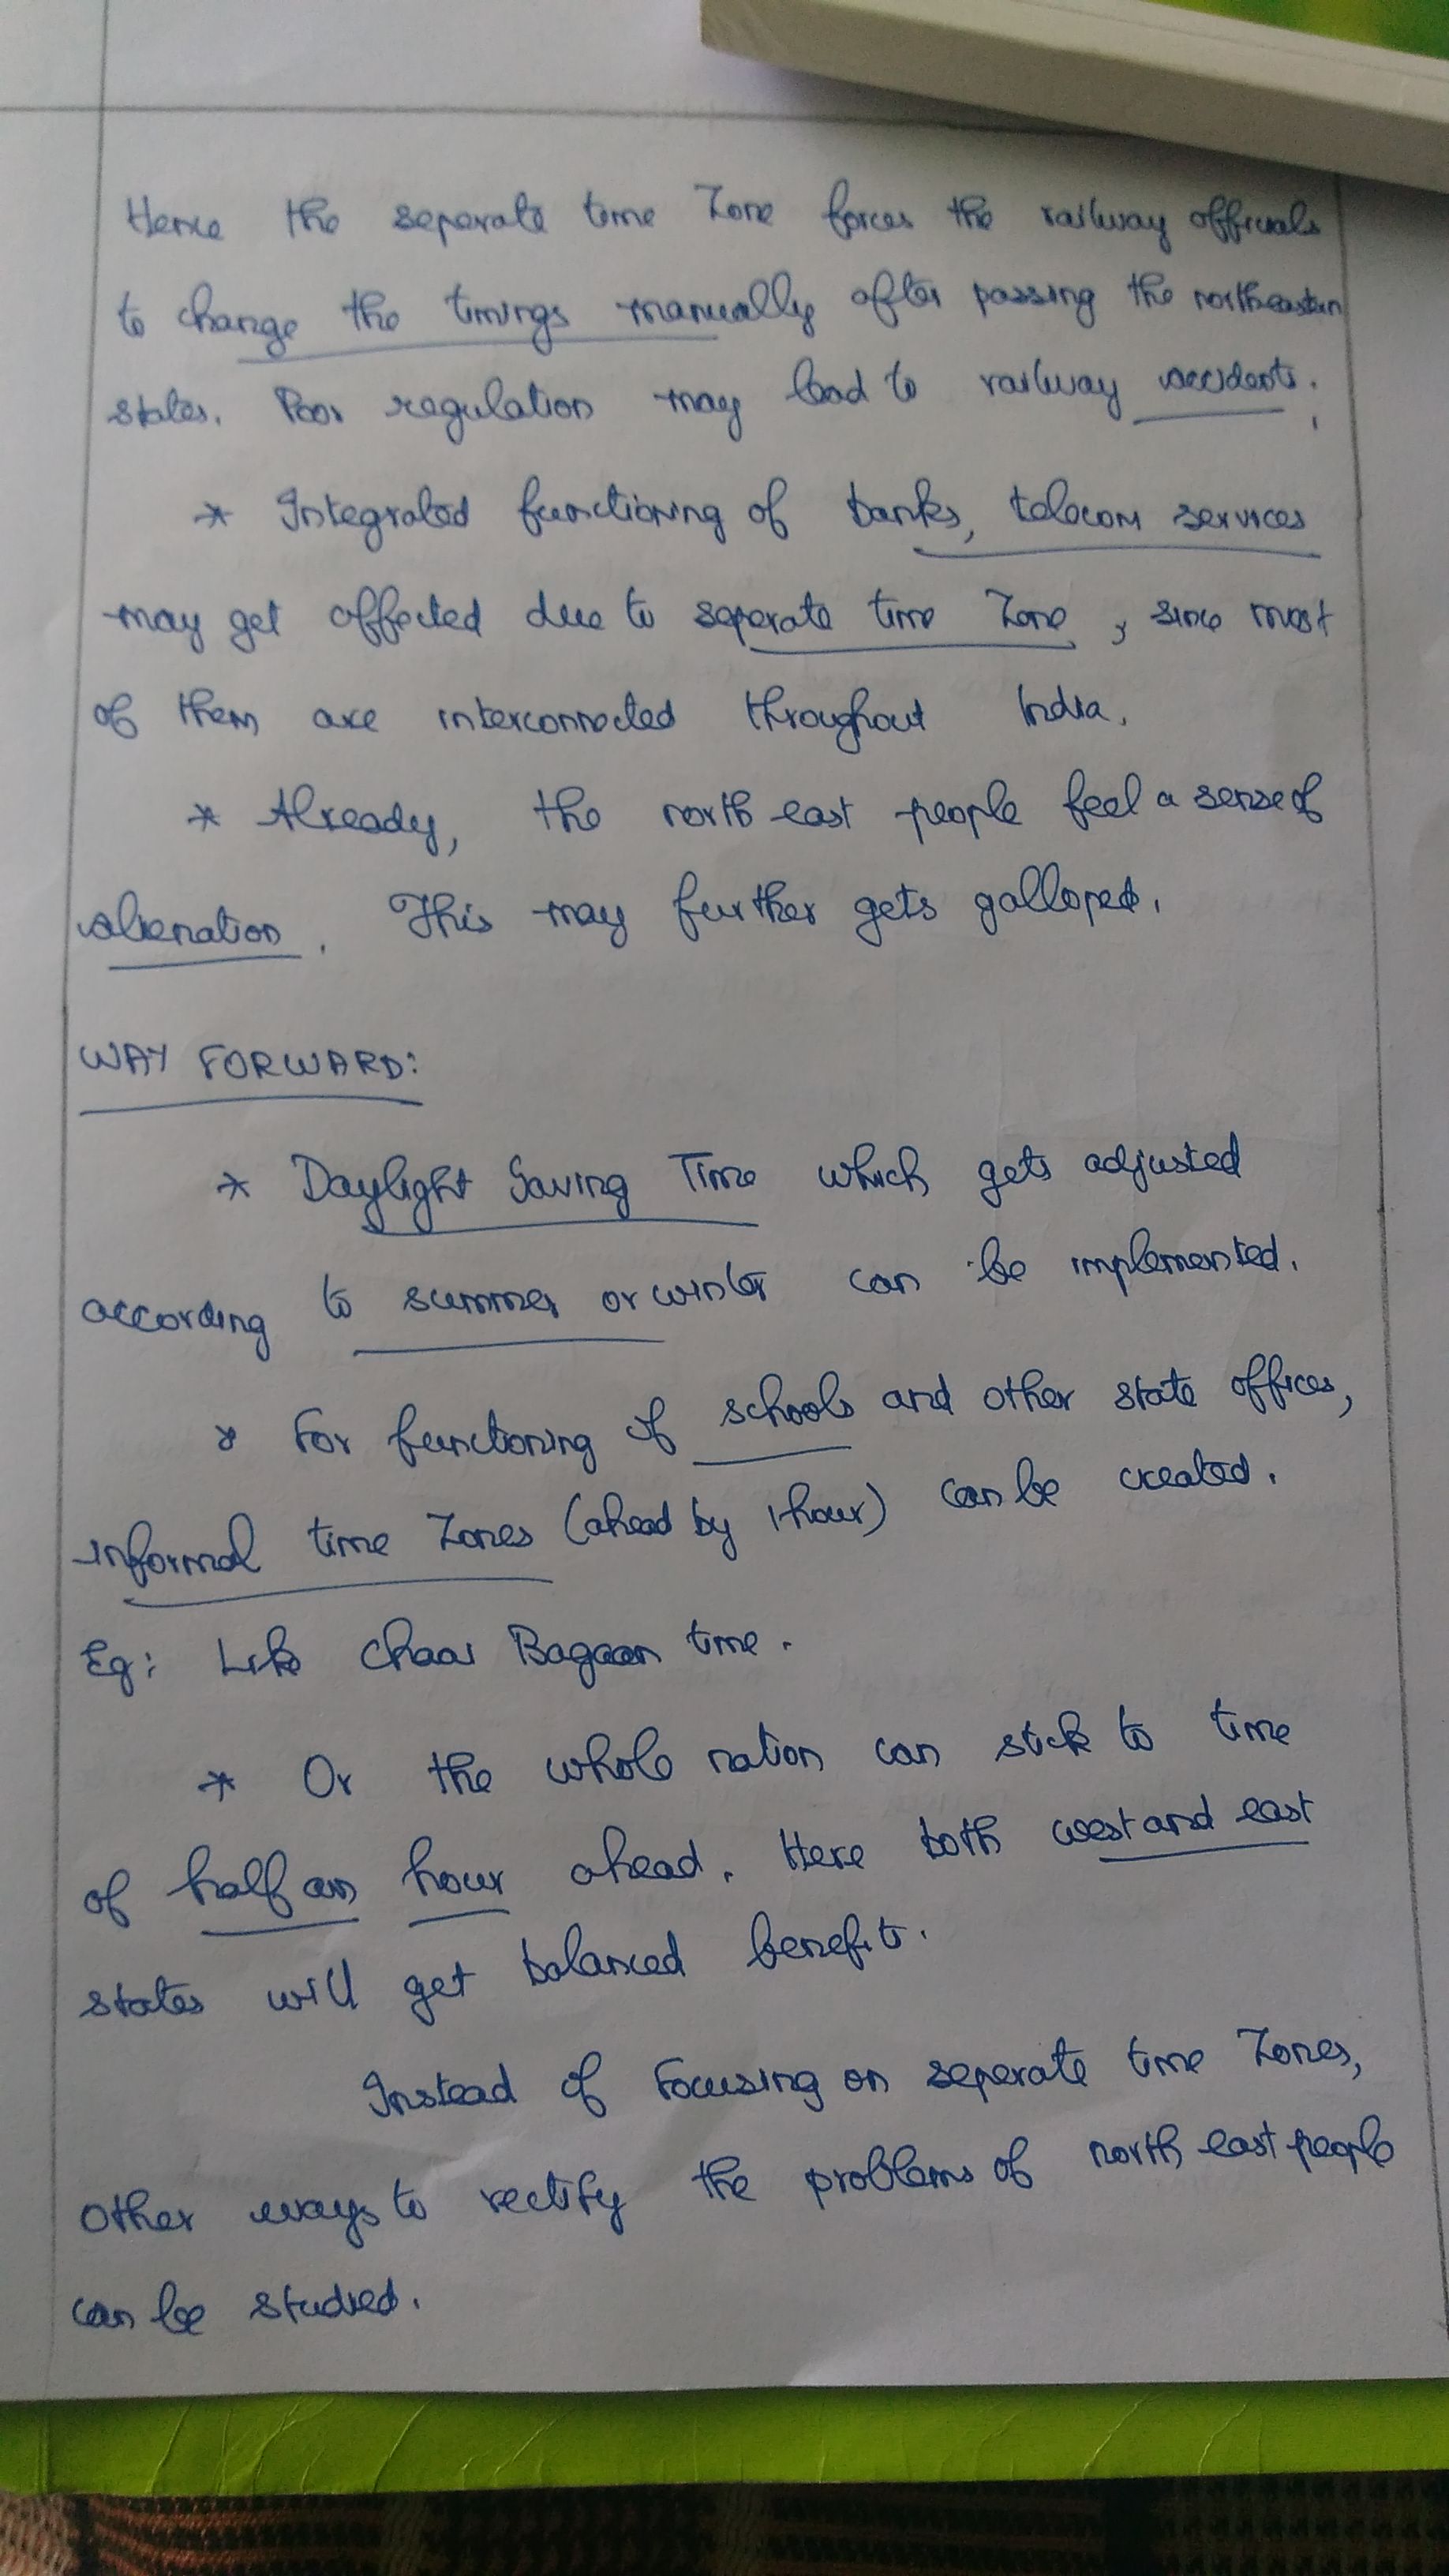 Hence the seperate time Zone forces the railway officials
to change the timings manually after passing the northeastern
states. Poor regulation may lead to railway accidents.
* Integrated functioning of banks, telecom services
may get affected due to seperate time Zone, since most
of them are interconnected throughout India.
* Already, the north east people feel a sense of
alienation. This may further gets galloped.
WAY FORWARD:
* Daylight Saving Time which gets adjusted
according to summer or winter can be implemented.
* For functioning of schools and other state offices,
informal time Zones (ahead by 1 hour) can be created.
Eg: Like Chaai Bagaan time.
* Or the whole nation can stick to time
of half an hour ahead. Here both west and east
states will get balanced benefit.
Instead of Focusing on seperate time Zones,
other ways to rectify the problems of north east people
can be studied.